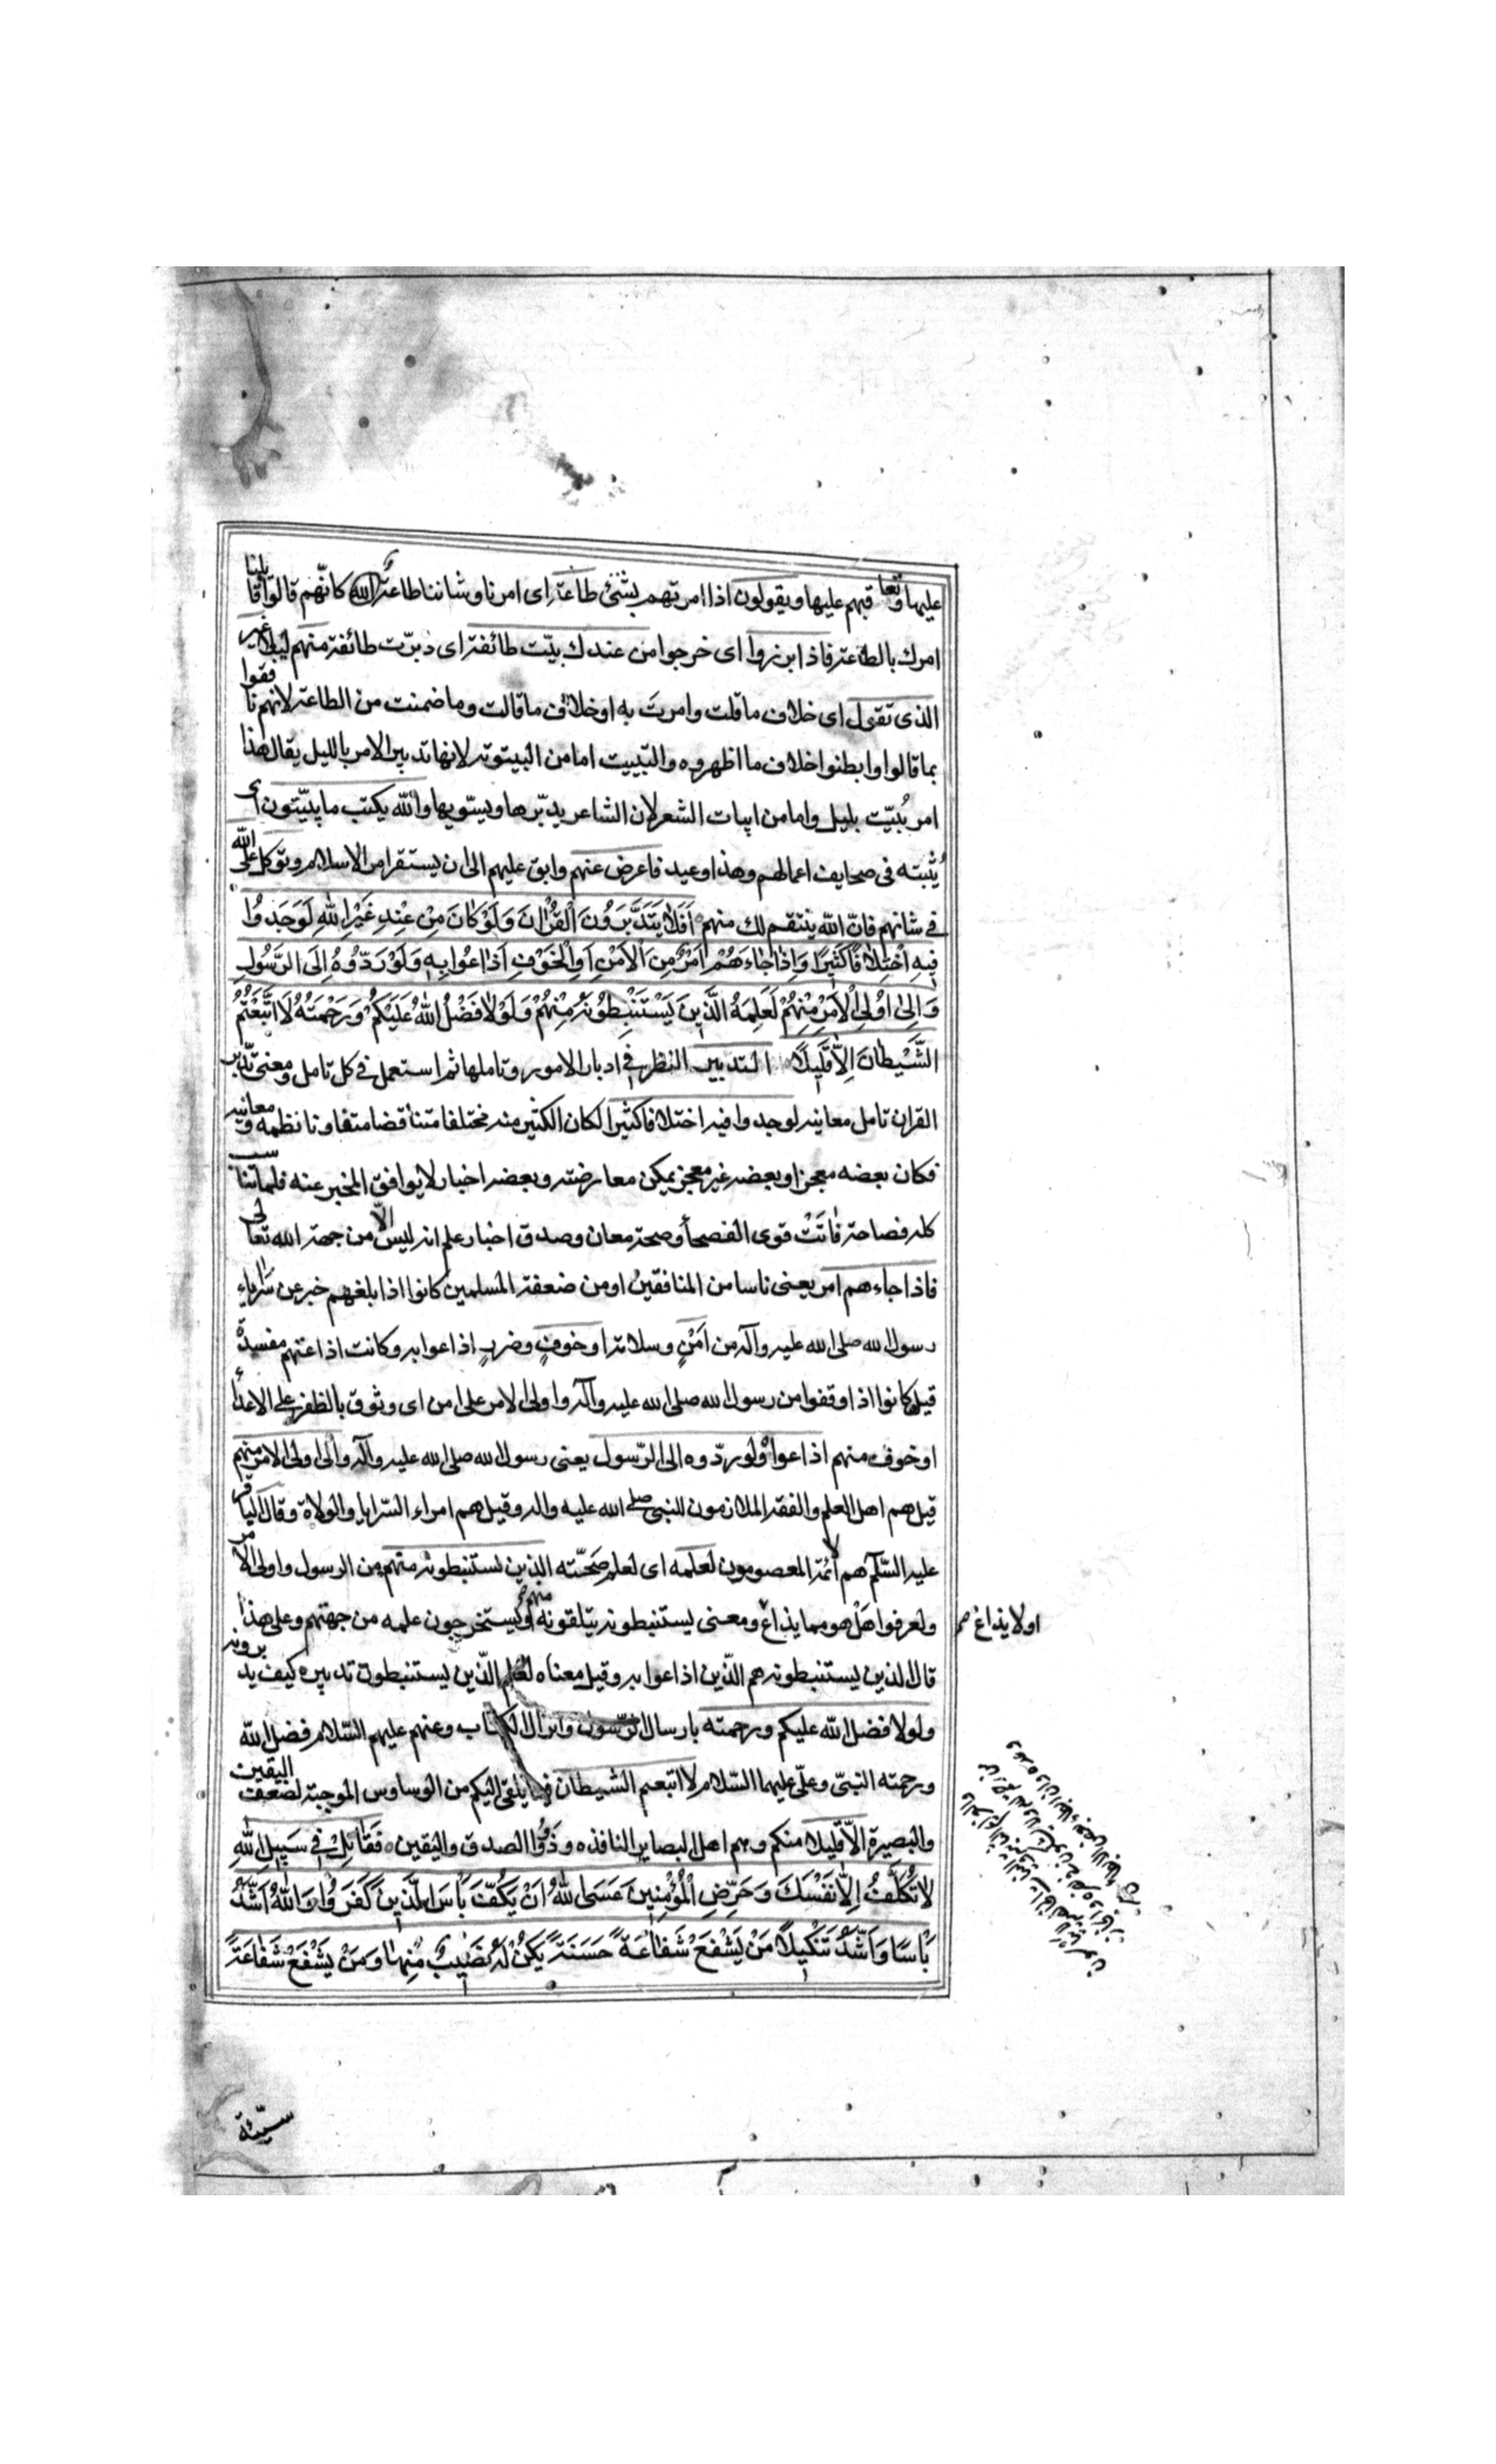 عليها وتعاقبهم عليها ويقولون اذا امرتهم بشئ طاعة اى امرنا وشاننا طاعة الله كانهم قالوا قابلنا
امرك بالطاعة فاذا برزوا اى خرجوا من عندك بيّت طائفة اى دبّرت طائفة منهم ليلا غير
الذى تقول اى خلاف ما قلت وامرتَ به او خلاف ما قالت وما ضمنت من الطاعة لانهم نافقوا
بما قالوا وابطنوا خلاف ما اظهروه والتبييت اما من البيتوتة لانها تدبير الامر بالليل يقال هذا
امر بُيّت بليل واما من ابيات الشعر لان الشاعر يدبّرها ويسوّيها والله يكتب ما يبيّتون اى
يُثبته فى صحايف اعمالهم وهذا وعيد فاعرض عنهم وابق عليهم الى ان يستقر امر الاسلام وتوكل على الله
فى شانهم فانّ الله ينتقم لك منهم اَفَلَا يَتَدَبَّرُونَ الْقُرْانَ وَلَوْ كَانَ مِنْ عِنْدِ غَيْرِ اللهِ لَوَجَدُوا
فِيهِ اخْتِلَافًا كَثِيرًا وَاِذَا جَاءَهُمْ اَمْرٌ مِنَ الْاَمْنِ اَوِ الْخَوْفِ اَذَاعُوا بِهِ وَلَوْ رَدُّوهُ اِلَى الرَّسُولِ
وَاِلَى اُولِى الْاَمْرِ مِنْهُمْ لَعَلِمَهُ الَّذِينَ يَسْتَنْبِطُونَهُ مِنْهُمْ وَلَوْلَا فَضْلُ اللهِ عَلَيْكُمْ وَرَحْمَتُهُ لَاتَّبَعْتُمُ
الشَّيْطَانَ اِلَّا قَلِيلًا التدبير النظر فى ادبار الامور وتاملها ثم استعمل فى كل تامل ومعنى تدبّر
القران تامل معانيه لوجدوا فيه اختلافا كثيرا لكان الكثير منه مختلفا متناقضا متفاوتا نظمه ومعانيه
فكان بعضه معجزا وبعضه غير معجز يمكن معارضته وبعضه اخبار لا يوافق المخبر عنه فلما تناسب
كله فصاحة فاتَتْ قوى الفصحا وصحة معان وصدق اخبار علم انه ليس الّا من جهة الله تعالى
فاذا جاءهم امر يعنى ناسا من المنافقين او من ضعفة المسلمين كانوا اذا بلغهم خبر عن سرايا
رسول الله صلى الله عليه وآله من اَمْنٍ وسلامة او خوفٍ وضربٍ اذاعوا به وكانت اذاعتهم مفسدة
قيل كانوا اذا وقفوا من رسول الله صلى الله عليه وآله واولى الامر على امن اى وثوق بالظفر على الاعداء
او خوف منهم اذاعوا ولو ردّوه الى الرّسول يعنى رسول الله صلى الله عليه وآله والى اولى الامر منهم
قيل هم اهل العلم والفقه الملازمون للنبى صلى الله عليه واله وقيل هم امراء السّرايا والولاة وقال الباقر
عليه السّلم هم الائمة المعصومون لعلمه اى لعلم صحّته الذين يستنبطونه منهم من الرسول واولى الامر
ولعرفوا هَلْ هو مما يذاع ومعنى يستنبطونه يتلقونه منهم ويستخرجون علمه من جهتهم وعلى هذا
او لا يذاع صح
قال الذين يستنبطونه هم الذّين اذاعوا به وقيل معناه لعلم الّذين يستنبطون تدبيره كيف يدبرونه
ولولا فضل الله عليكم ورحمته بارسال الرّسول وانزال الكتاب وعنهم عليهم السّلام فضل الله
ورحمته النبىّ وعلىّ عليهما السّلام لاتبعتم الشيطان فيما يلقى اليكم من الوساوس الموجبة لضعف اليقين
والبصيرة الّا قليلا منكم وهم اهل البصاير النافذه وذوُوا الصدق واليقين فَقَاتِلْ فِى سَبِيلِ اللهِ
لَا تُكَلَّفُ اِلَّا نَفْسَكَ وَحَرِّضِ الْمُؤْمِنِينَ عَسَى اللهُ اَنْ يَكُفَّ بَاْسَ الَّذِينَ كَفَرُوا وَاللهُ اَشَدُّ
بَاْسًا وَاَشَدُّ تَنْكِيلًا مَنْ يَشْفَعْ شَفَاعَةً حَسَنَةً يَكُنْ لَهُ نَصِيبٌ مِنْهَا وَمَنْ يَشْفَعْ شَفَاعَةً
سيّئة